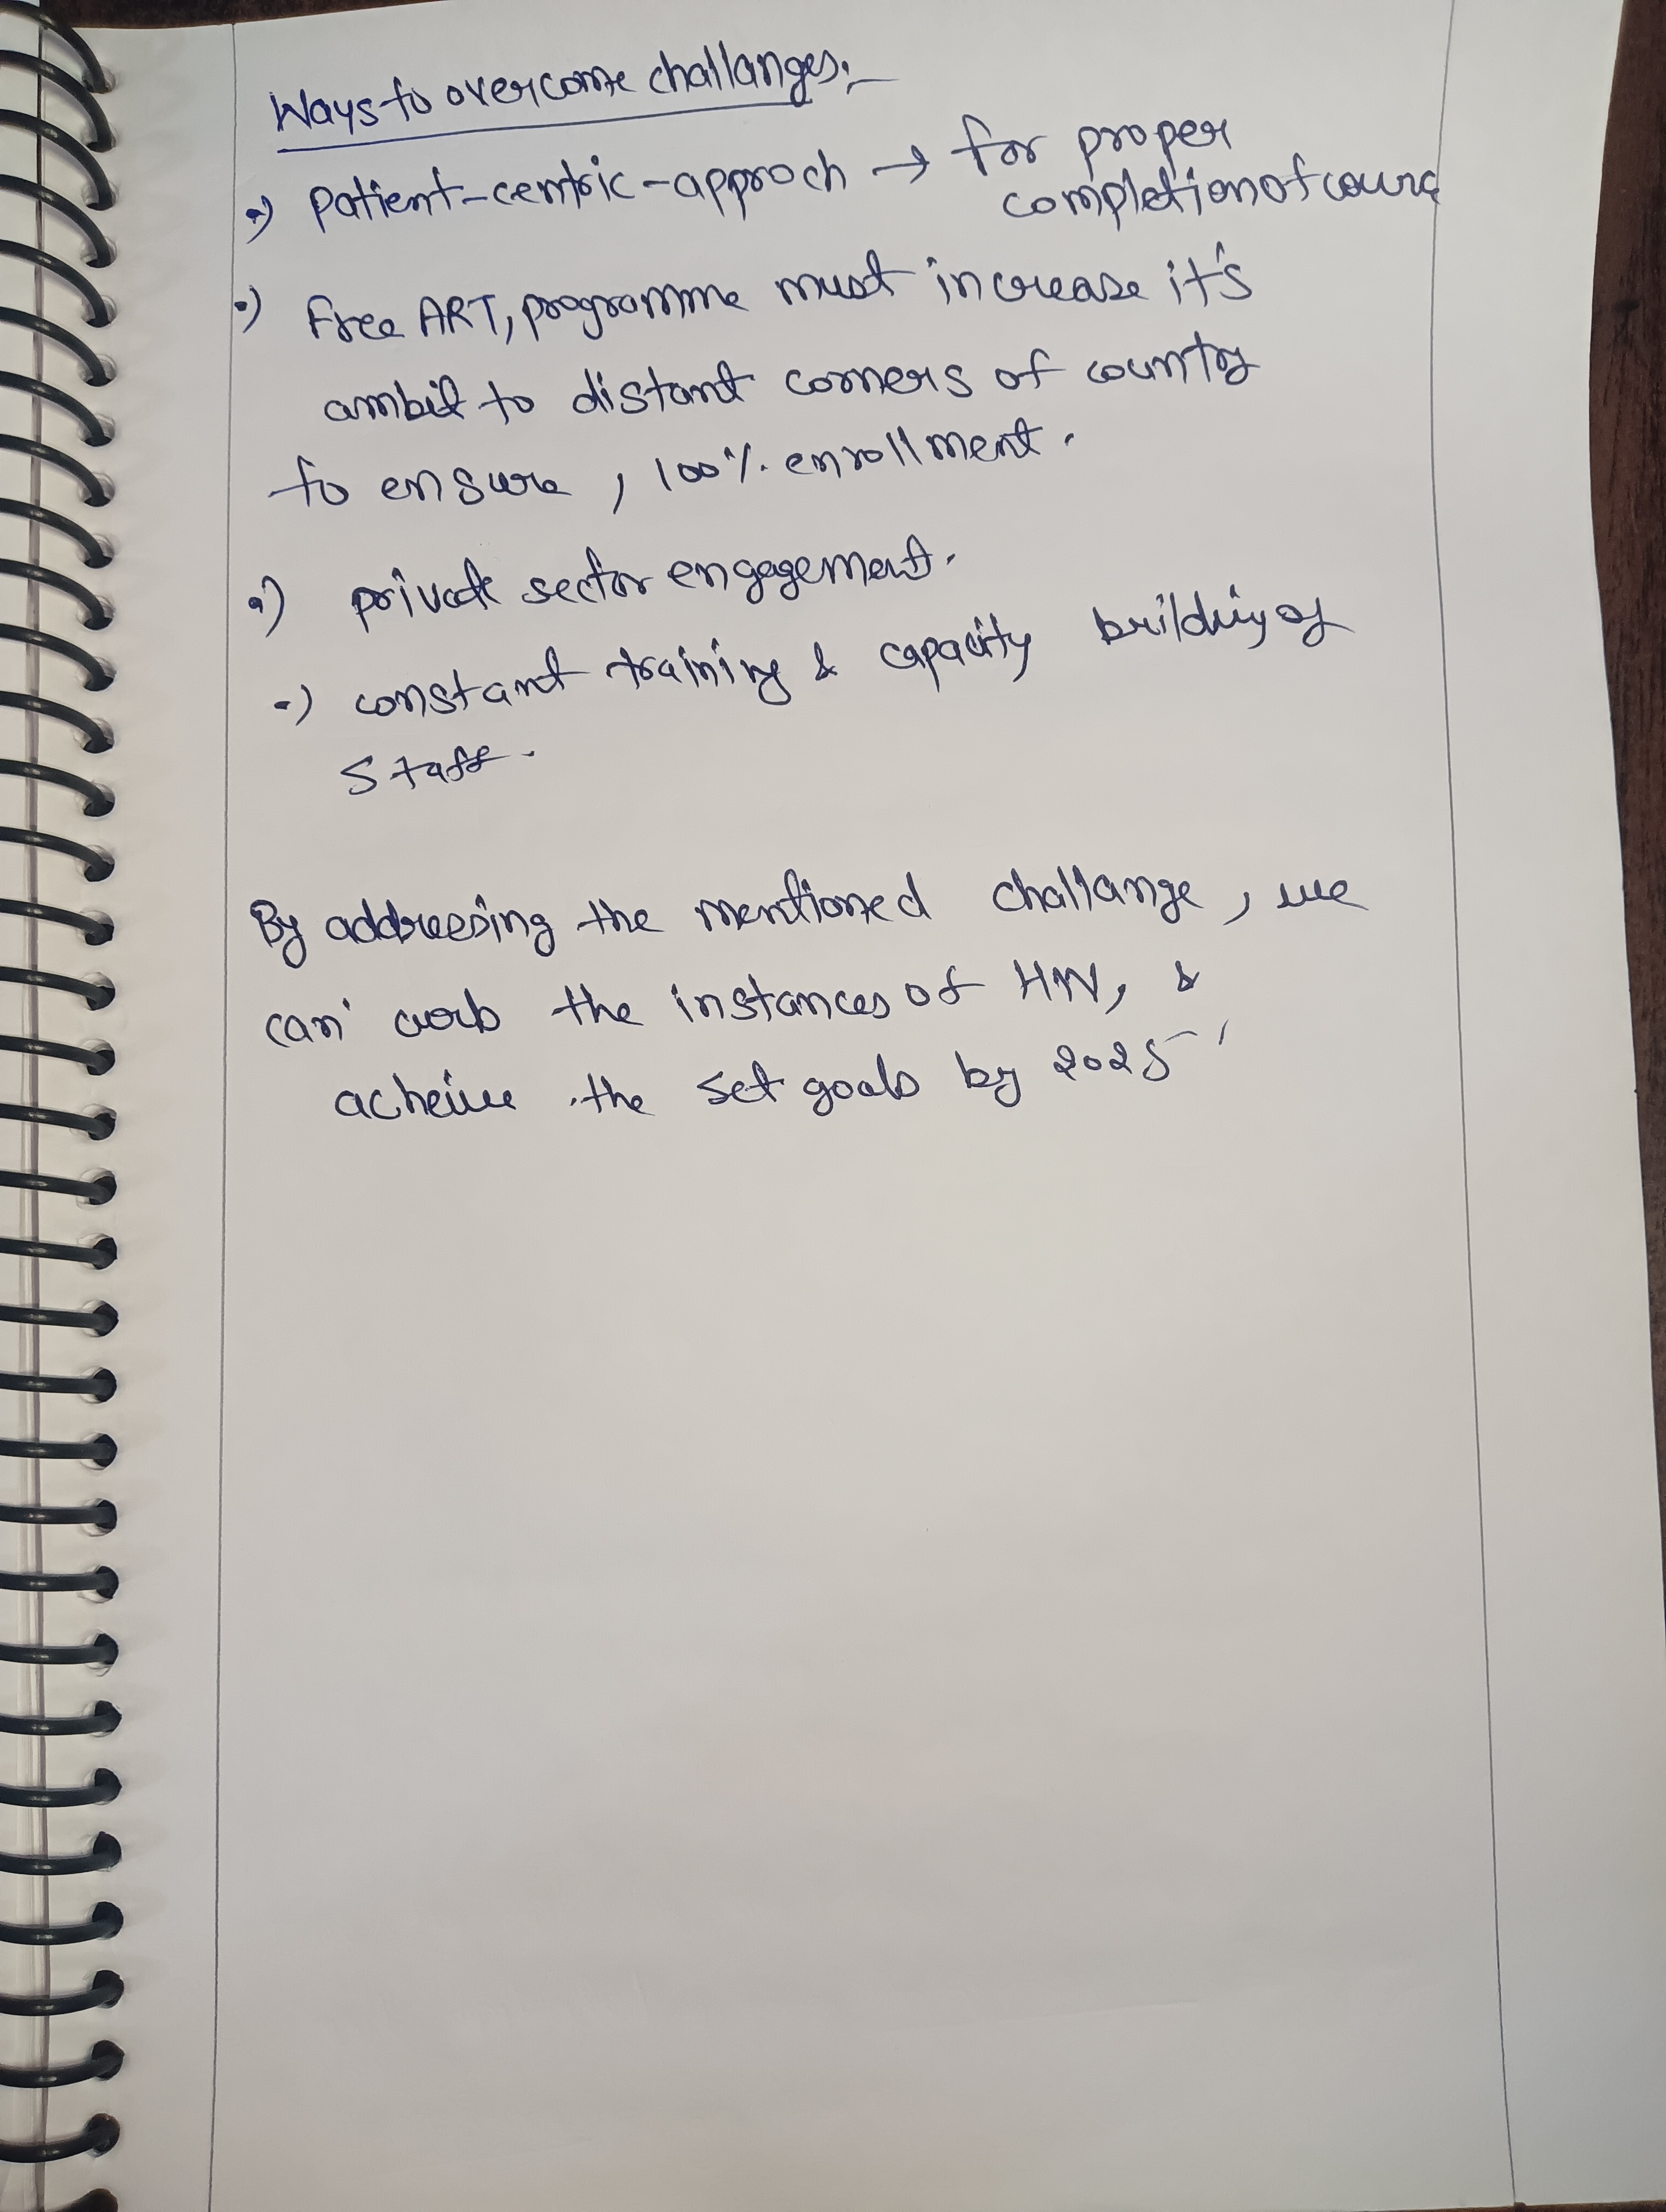 Ways to overcome challanges:-
•) patient-centric-approch → for proper
completion of cours
•) Free ART, programme must increase it's
ambit to distant corners of country
to ensure, 100% enrollment.
•) private sector engagement.
•) constant training & capacity building of
staff.
By addressing the mentioned challange, we
can curb the instances of HIV, &
acheive the set goals by 2025.